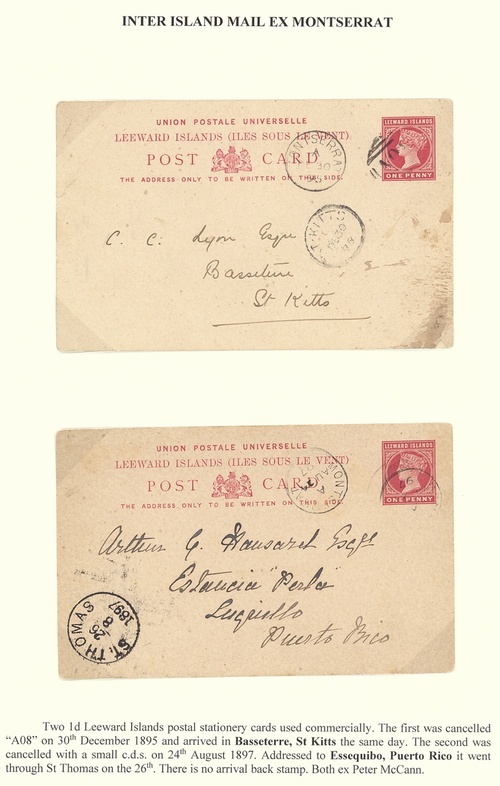 INTER ISLAND MAIL EX MONTSERRAT
UNION POSTALE UNIVERSELLE
LEEWARD ISLANDS (ILES SOUS LE VENT)
POST CARD
THE ADDRESS ONLY TO BE WRITTEN ON THIS SIDE.
LEEWARD ISLANDS
ONE PENNY
MONTSERRAT
A
30
95
ST. KITTS
DE 30
95
C. C. Lyon Esqre
Basseterre
St Kitts
UNION POSTALE UNIVERSELLE
LEEWARD ISLANDS (ILES SOUS LE VENT)
POST CARD
THE ADDRESS ONLY TO BE WRITTEN ON THIS SIDE.
LEEWARD ISLANDS
ONE PENNY
Arthur G. Hansard Esqre
Estancia "Perla"
Luquillo
Puerto Rico
ST. THOMAS
26
8
1897
Two 1d Leeward Islands postal stationery cards used commercially. The first was cancelled
"A08" on 30th December 1895 and arrived in Basseterre, St Kitts the same day. The second was
cancelled with a small c.d.s. on 24th August 1897. Addressed to Essequibo, Puerto Rico it went
through St Thomas on the 26th. There is no arrival back stamp. Both ex Peter McCann.